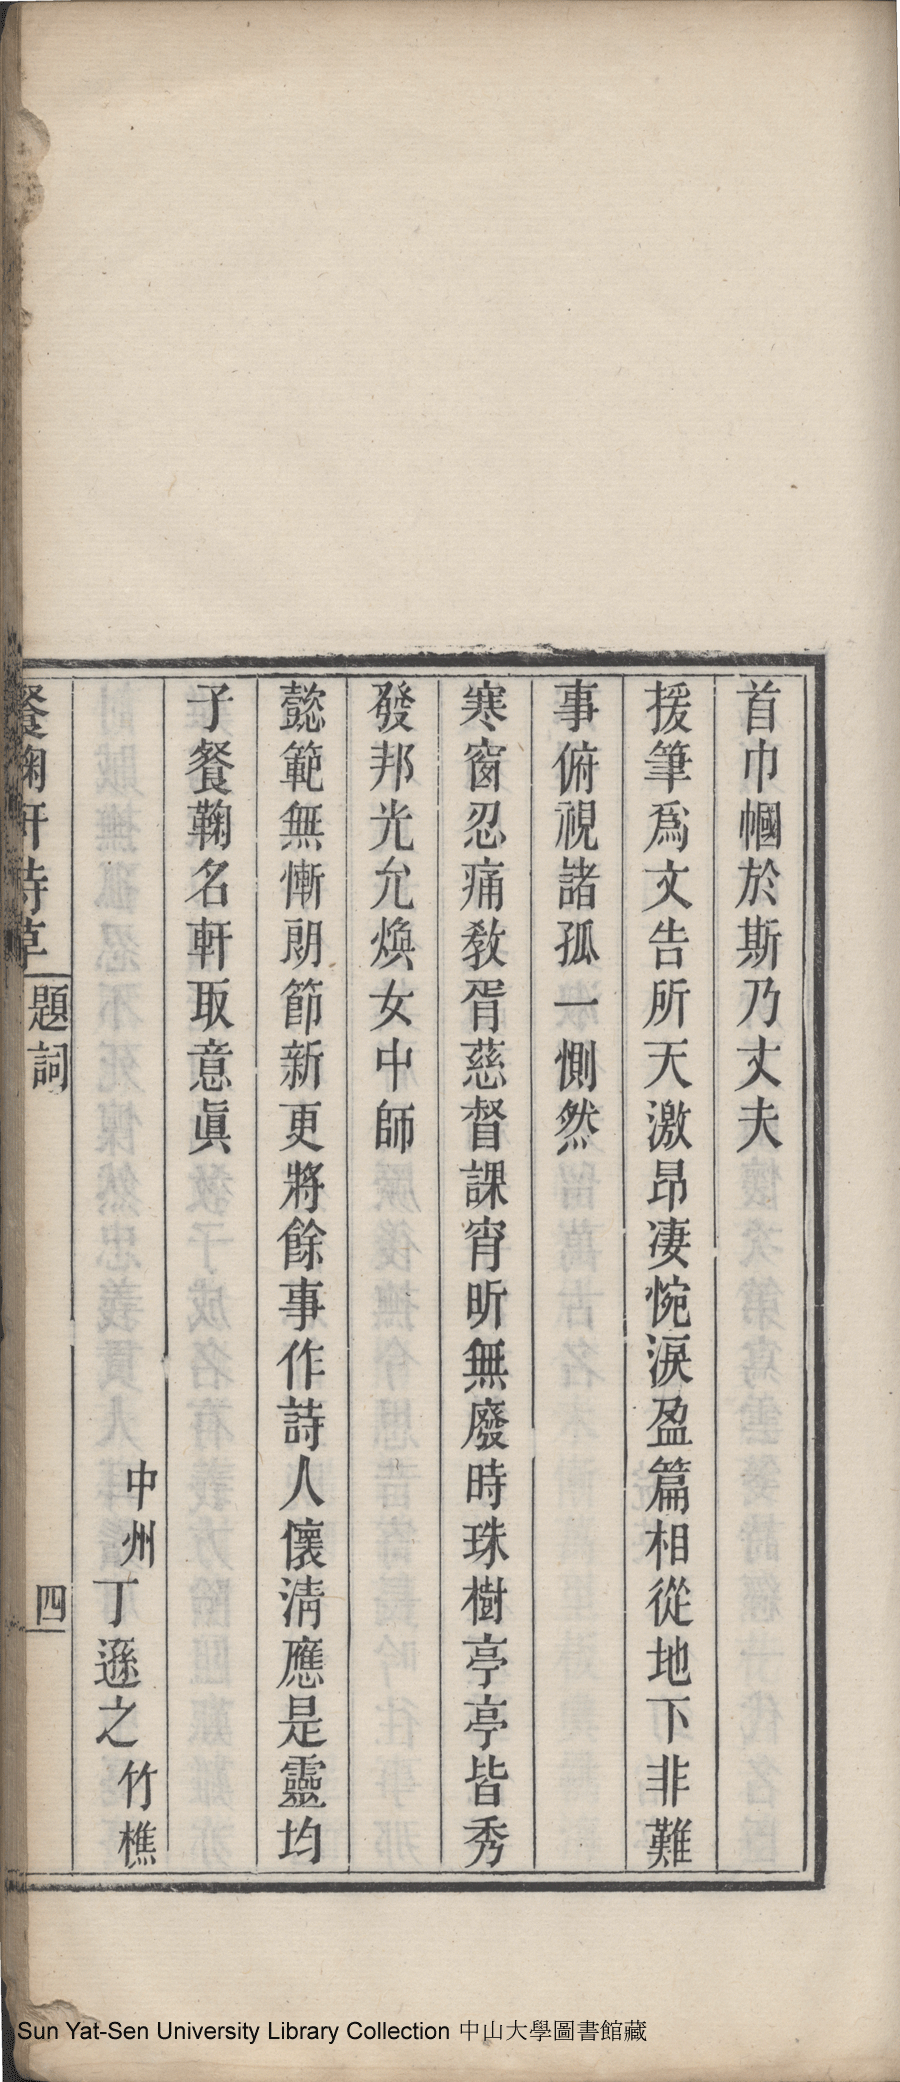 首巾幗於斯乃丈夫
援筆爲文告所天激昂凄惋淚盈篇相從地下非難
事俯視諸孤一惻然
寒窗忍痛敎胥慈督課宵昕無廢時珠樹亭亭皆秀
發邦光允煥女中師
懿範無慚朗節新更將餘事作詩人懷淸應是靈均
子餐鞠名軒取意眞
中州丁遜之竹樵
餐鞠軒詩草 題詞 四
Sun Yat-Sen University Library Collection 中山大學圖書館藏